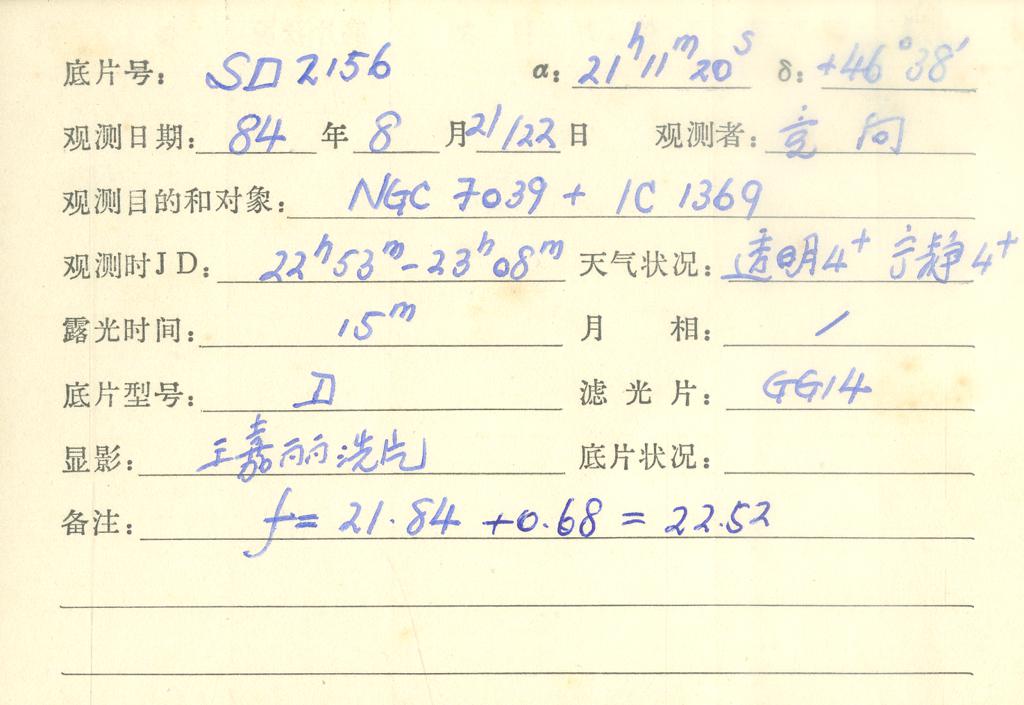 底片号: SD 2156 α: 21ʰ11ᵐ20ˢ δ: +46°38′
观测日期: 84 年 8 月 21/22 日 观测者: 竞 向
观测目的和对象: NGC 7039 + IC 1369
观测时JD: 22ʰ53ᵐ-23ʰ08ᵐ 天气状况: 透明4⁺ 宁静4⁺
露光时间: 15ᵐ 月 相: /
底片型号: D 滤 光 片: GG14
显影: 王嘉丽洗片 底片状况:
备注: f= 21.84 +0.68 = 22.52